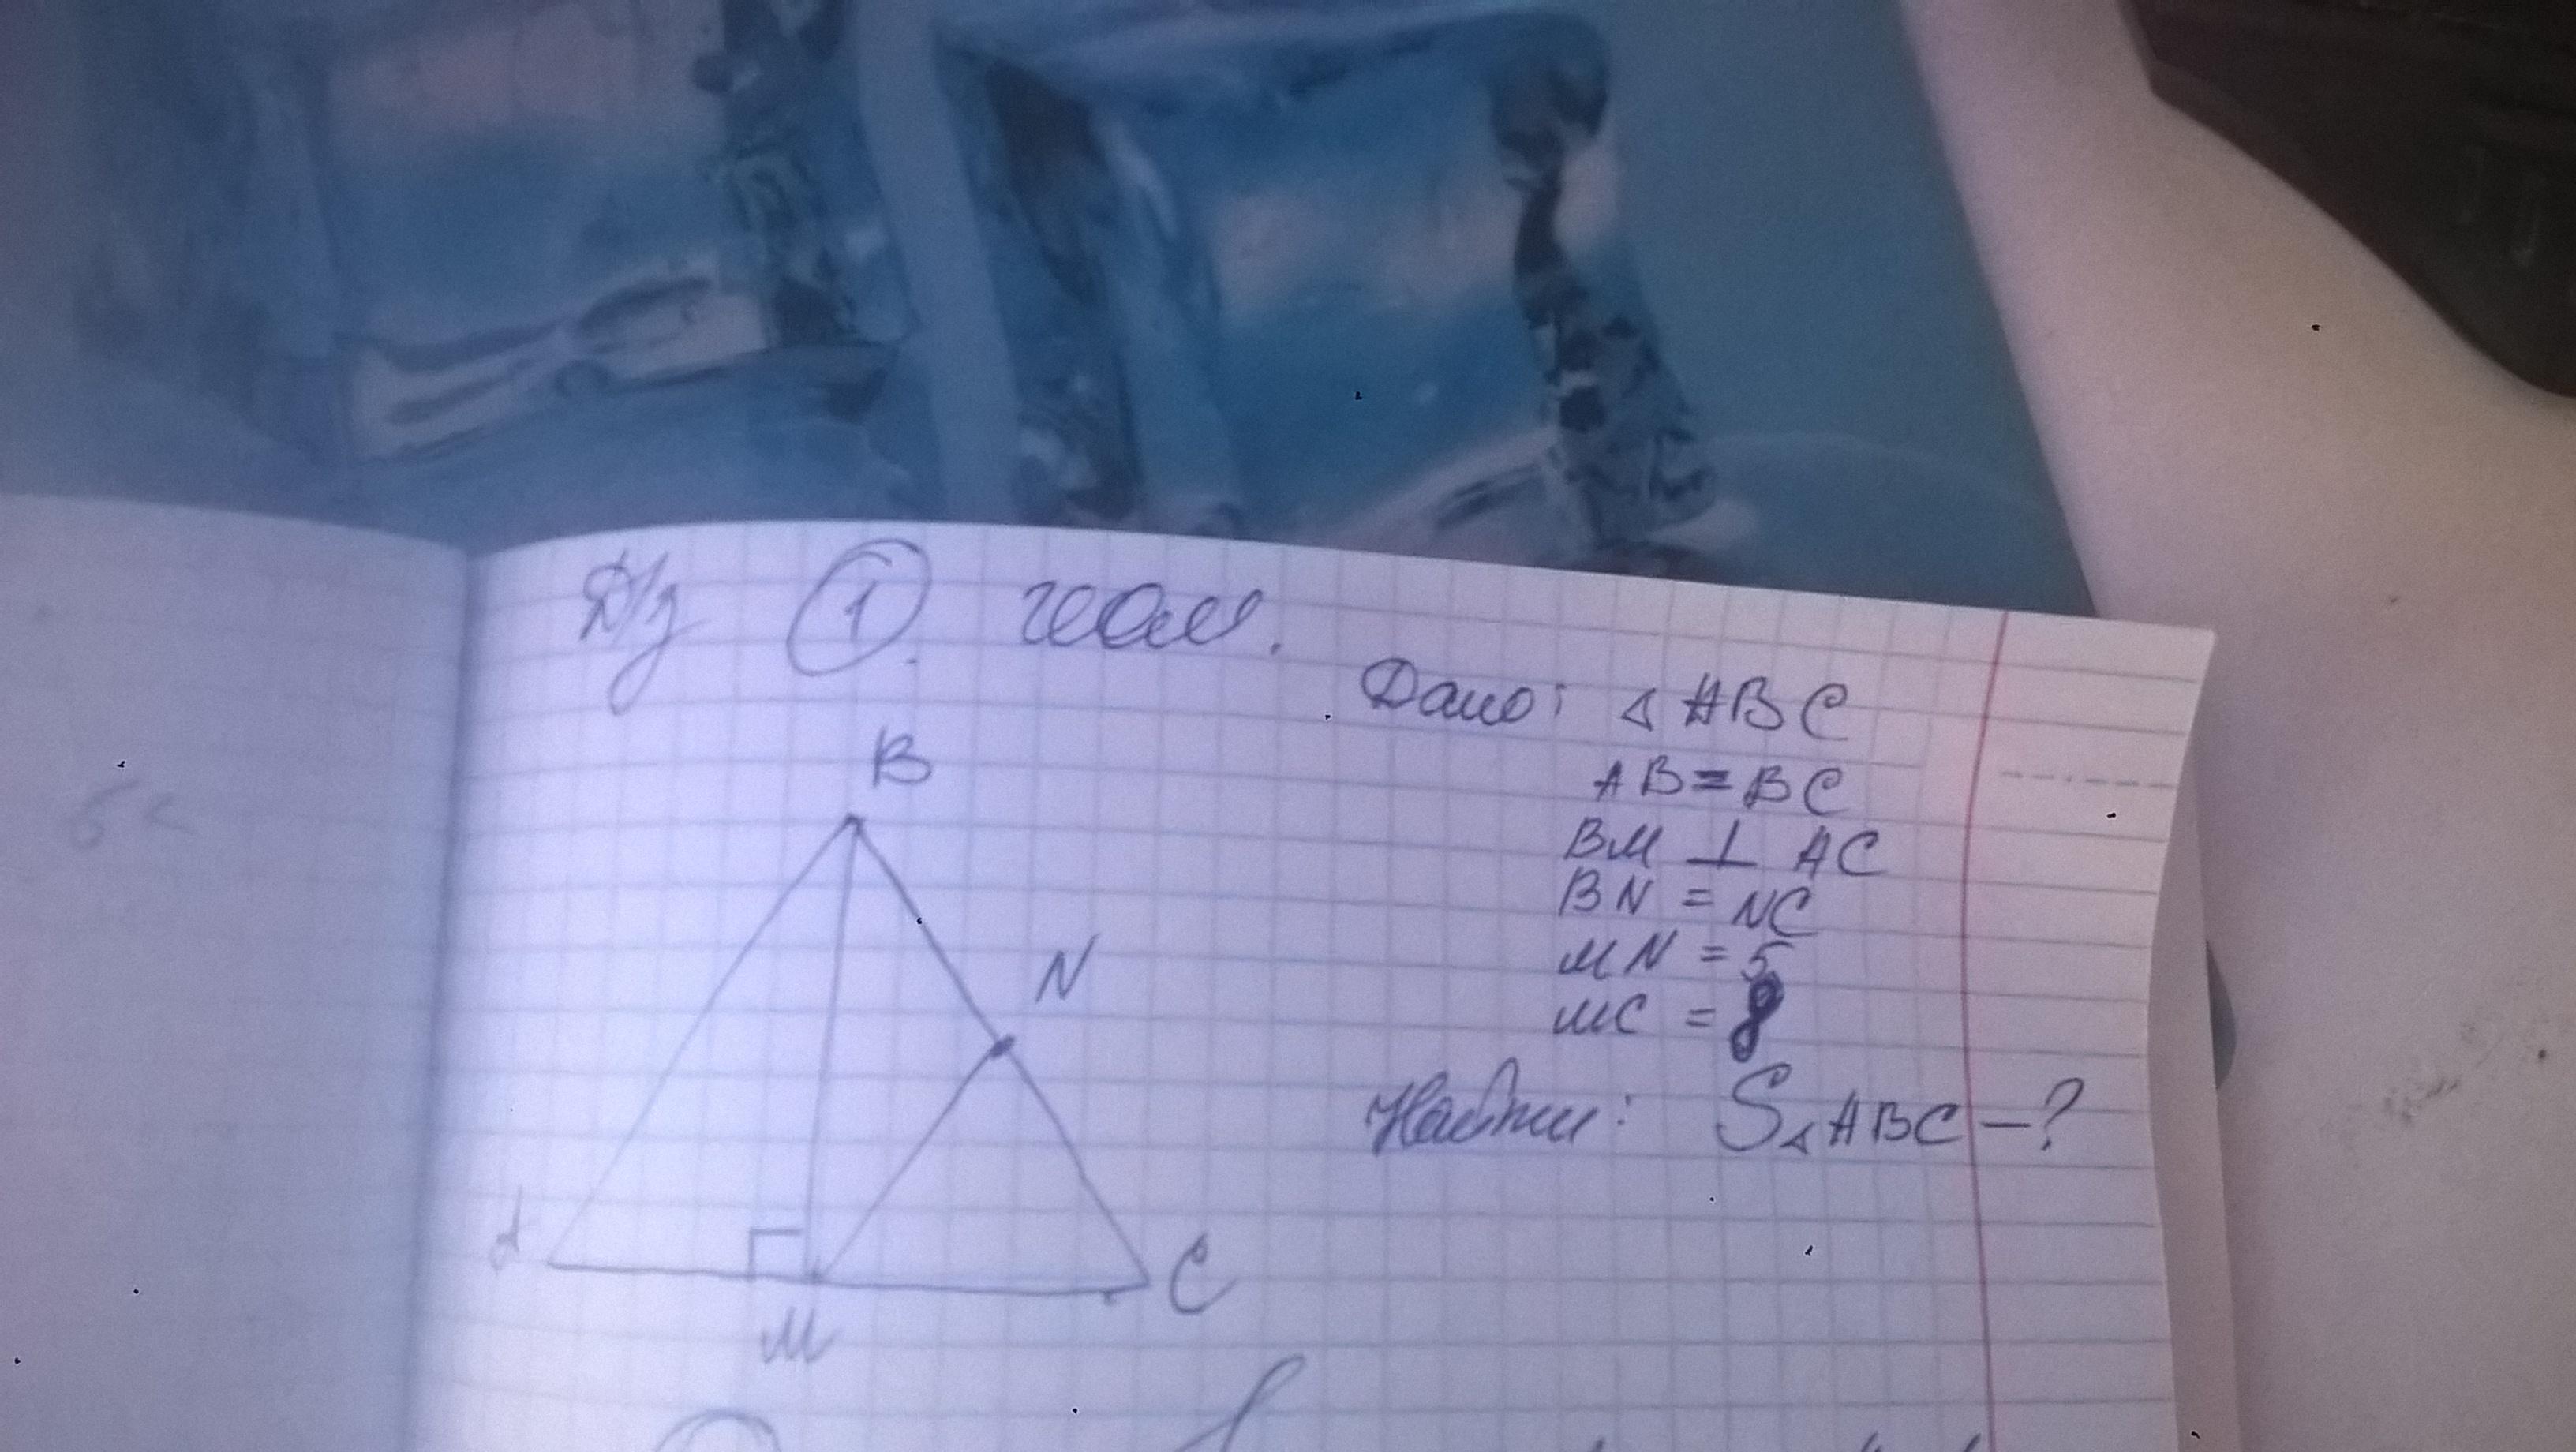 Д/з ①. геом.
Дано: △ABC
AB = BC
BM ⊥ AC
BN = NC
MN = 5
MC = 8
Найти: S△ABC – ?
B
N
A
M
C